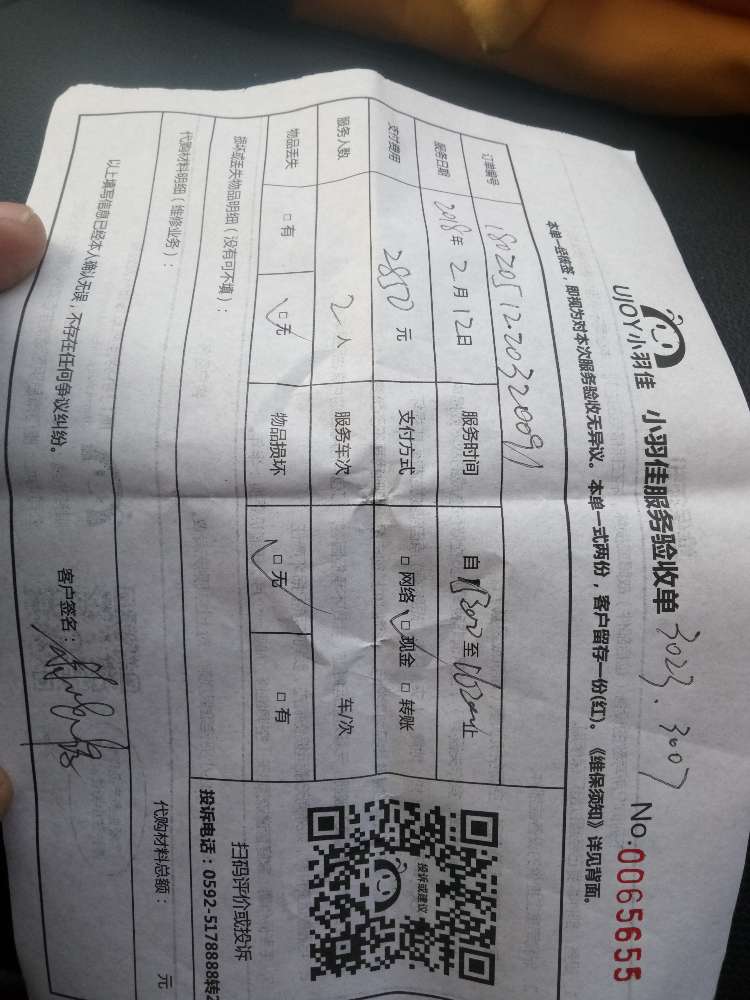 UJOY小羽佳 小羽佳服务验收单 3023. 3007 No:0065655
本单一经签, 即视为对本次服务验收无异议。本单一式两份，客户留存一份(红)。《维保须知》详见背面。
订单编号
服务日期 2018年2月12日 服务时间 自 至 止
支付费用 2850元 支付方式 □网络 □现金 □转账
服务人数 2人 服务车次 车/次
物品丢失 □有 □无 物品损坏 □无 □有
损坏或丢失物品明细（没有可不填）：
代购材料明细（维修业务）： 代购材料总额： 元
以上填写信息已经本人确认无误，不存在任何争议纠纷。 客户签名：
投诉或建议
扫码评价或投诉
投诉电话：0592-5178888转2